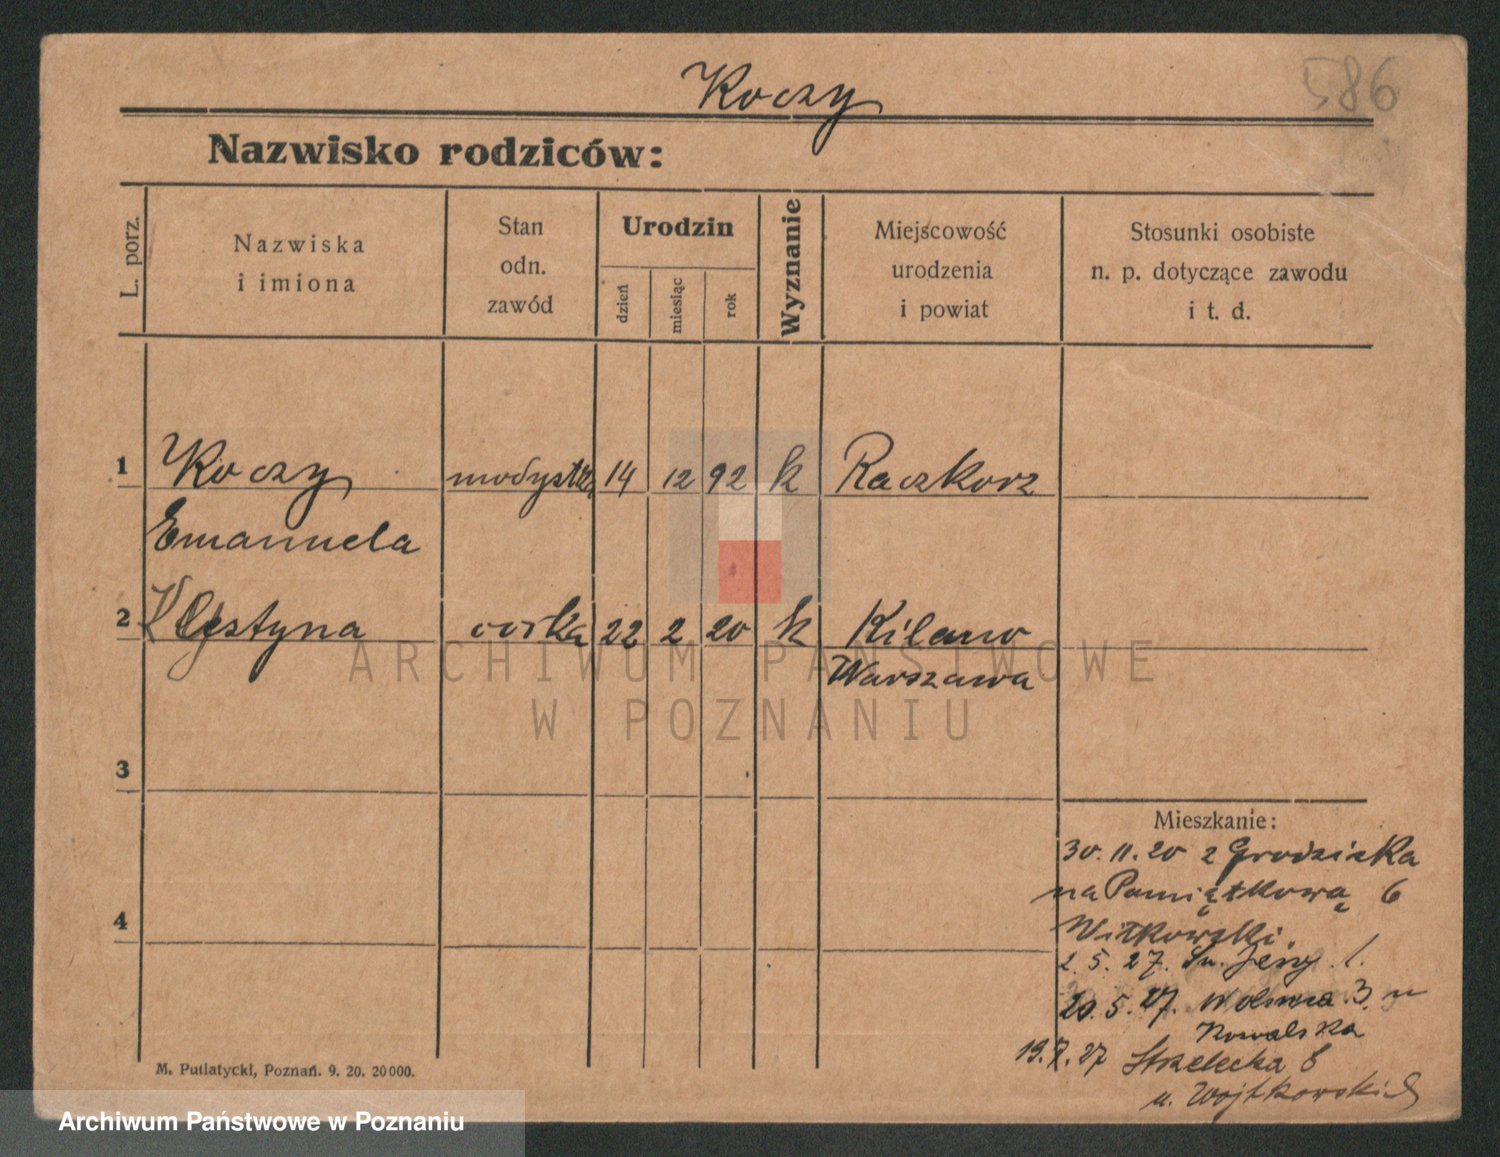 Koczy
586
Nazwisko rodziców:
L. porz.
Nazwiska
i imiona
Stan
odn.
zawód
Urodzin
dzień
miesiąc
rok
Wyznanie
Miejscowość
urodzenia
i powiat
Stosunki osobiste
n. p. dotyczące zawodu
i t. d.
1 Koczy modystka 14 12 92 k Raczkorz
Emanuela
2 córka 22 2 20 k
Warszawa
ARCHIWUM PAŃSTWOWE
W POZNANIU
3
Mieszkanie:
30.11.20 z Grodziska
na Pamiątkową 6
4
Witkowski.
2.5.27. Św. Jerzy 1.
20.5.27. Wolnica 3 u
Kowalska
19. 27 Strzelecka 8
u. Wojtkowskich
M. Putiatycki, Poznań. 9. 20. 20000.
Archiwum Państwowe w Poznaniu